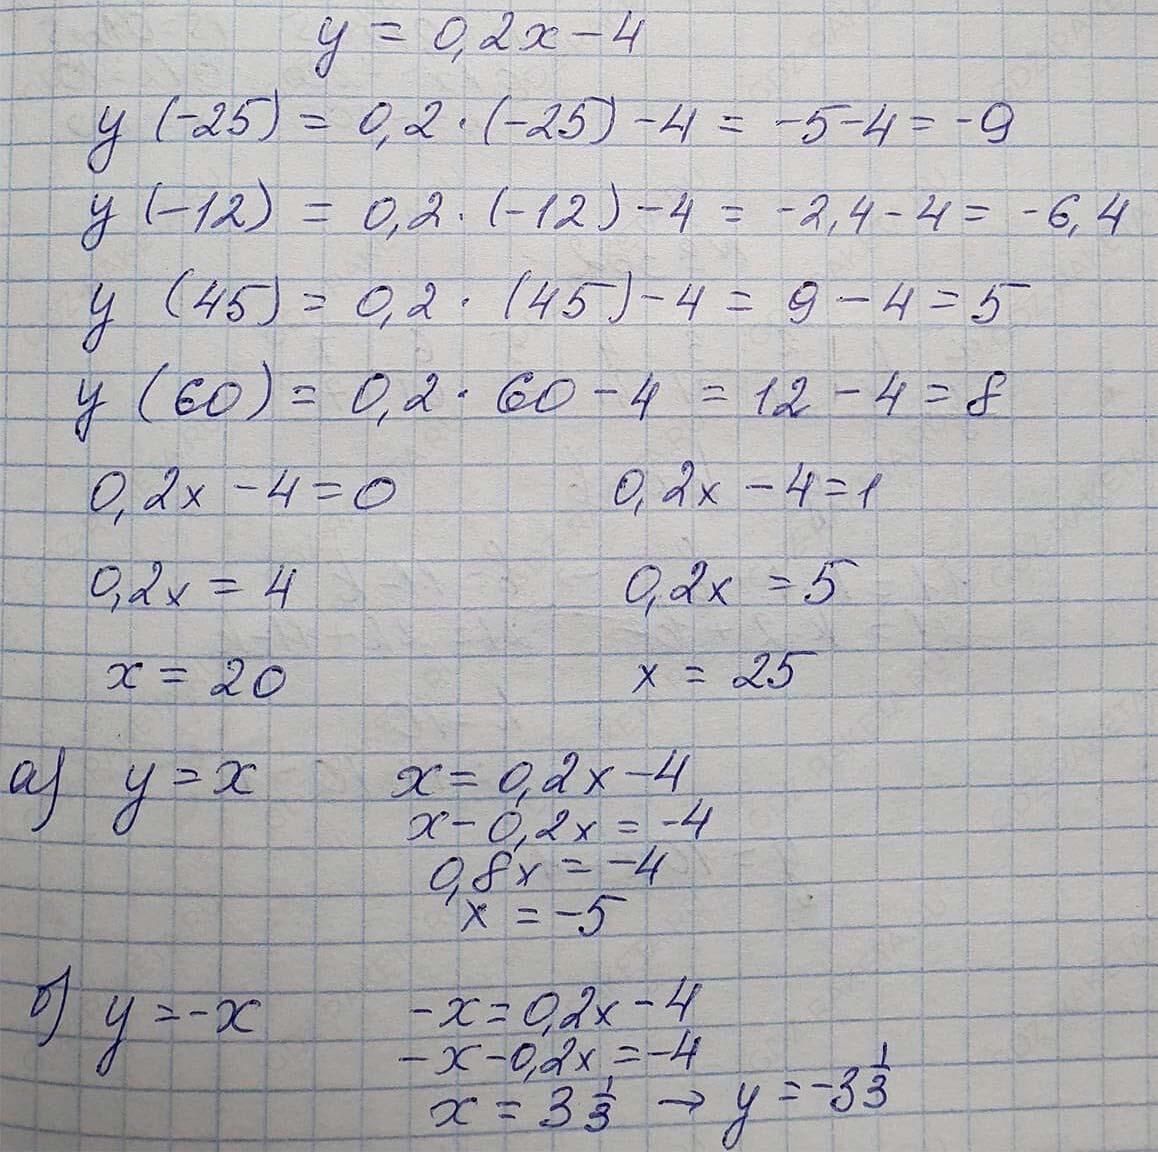 y = 0,2x - 4
y (-25) = 0,2 · (-25) - 4 = -5 - 4 = -9
y (-12) = 0,2 · (-12) - 4 = -2,4 - 4 = -6,4
y (45) = 0,2 · (45) - 4 = 9 - 4 = 5
y (60) = 0,2 · 60 - 4 = 12 - 4 = 8
0,2x - 4 = 0 0,2x - 4 = 1
0,2x = 4 0,2x = 5
x = 20 x = 25
а) y = x x = 0,2x - 4
x - 0,2x = -4
0,8x = -4
x = -5
б) y = -x -x = 0,2x - 4
-x - 0,2x = -4
x = 3 1/3 → y = -3 1/3